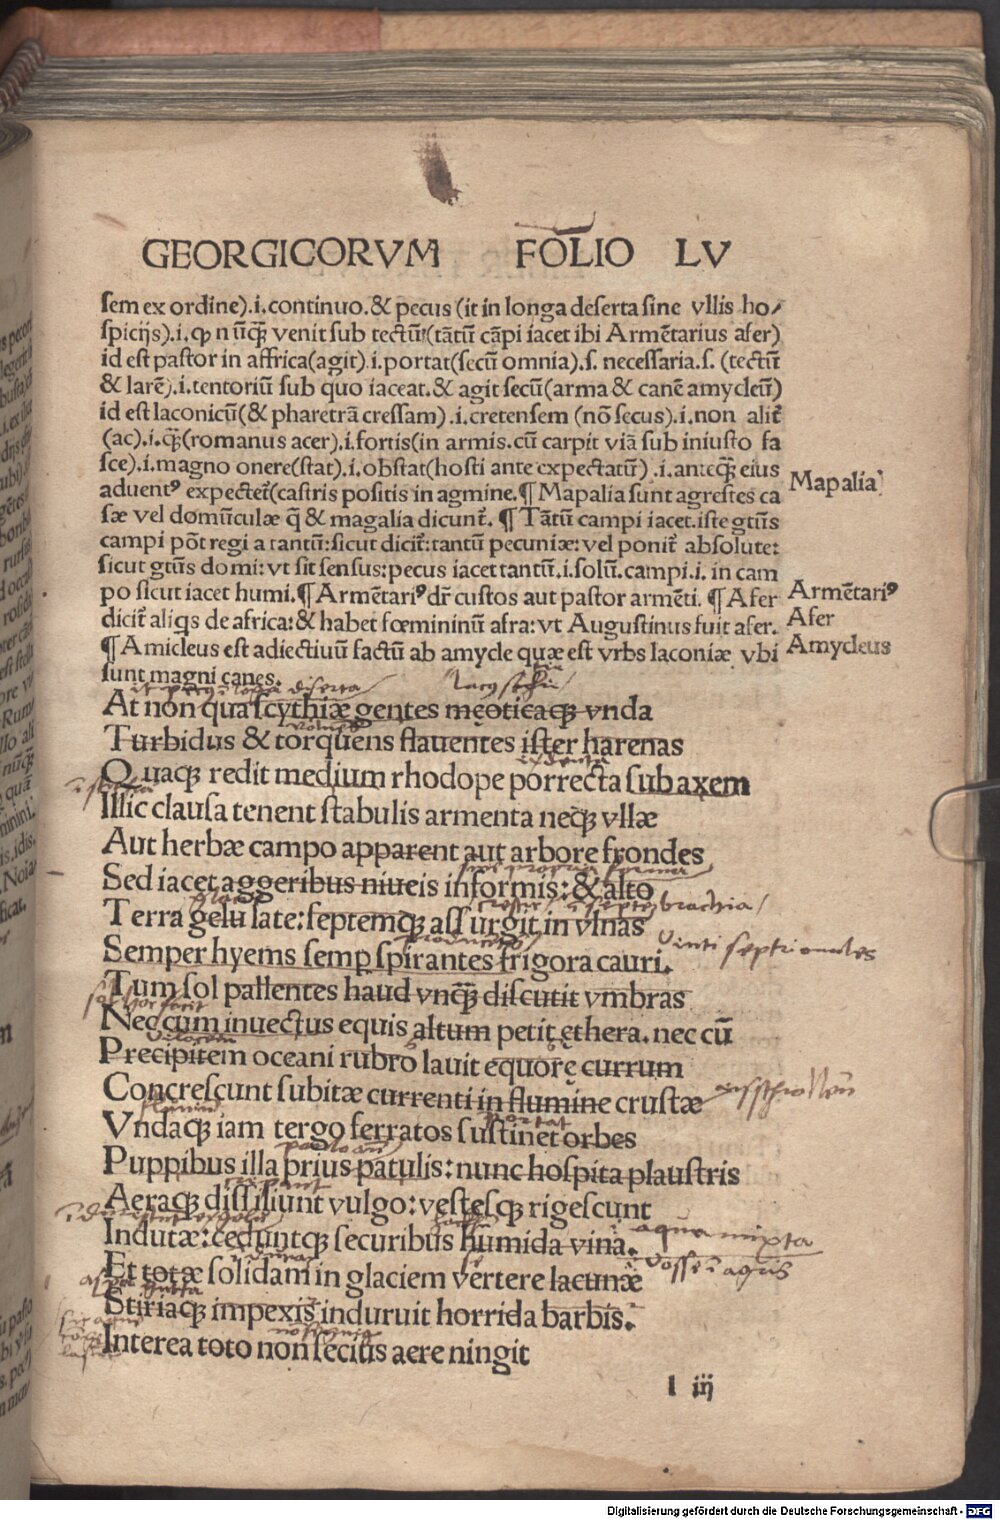 GEORGICORVM FOLIO LV
sem ex ordine).i.continuo.& pecus (it in longa deserta sine vllis ho/
spicijs).i.ꝙ n ūꝗ̄ venit sub tectū(tātū cāpi iacet ibi Armētarius afer)
id est pastor in affrica(agit).i.portat(secū omnia).s. necessaria.s. (tectū
& larē).i.tentoriū sub quo iaceat.& agit secū(arma & canē amycleū)
id est laconicū(& pharetrā cressam) .i.cretensem (nō secus).i.non alit̄
(ac).i.ꝗ̄(romanus acer).i.fortis(in armis.cū carpit viā sub iniusto fa
sce).i.magno onere(stat).i.obstat(hosti ante expectatū) .i.anteꝗ̄ eius
aduentꝰ expectet̄(castris positis in agmine.¶ Mapalia sunt agrestes ca
Mapalia
sæ vel domūculæ q̄ & magalia dicunt̄. ¶ Tātū campi iacet.iste gtūs
campi pōt regi a tantū:sicut dicit̄:tantū pecuniæ:vel ponit̄ absolute:
sicut gtūs domi:vt sit sensus:pecus iacet tantū.i.solū.campi.i. in cam
po sicut iacet humi.¶ Armētariꝰ dr̄ custos aut pastor armēti. ¶ Afer
Armētariꝰ
dicit̄ aliqs de africa:& habet fœmininū afra:vt Augustinus fuit afer.
Afer
¶ Amicleus est adiectiuū factū ab amycle quæ est vrbs laconiæ vbi
Amycleus
sunt magni canes.
At non qua scythiæ gentes męoticaꝗ vnda
Turbidus & torquens flauentes ister harenas
Quaꝗ redit medium rhodope porrecta sub axem
Illic clausa tenent stabulis armenta neꝗ̄ vllæ
Aut herbæ campo apparent aut arbore frondes
Sed iacet aggeribus niueis informis: & alto
Terra gelu late:septemꝗ assurgit in vlnas
brachia
Semper hyems semp̱ spirantes frigora cauri.
Tum sol pallentes haud vnꝗ̄ discutit vmbras
Nec cum inuectus equis altum petit ęthera. nec cū
Precipitem oceani rubro lauit equore currum
Concrescunt subitæ currenti in flumine crustæ
Vndaꝗ iam tergo ferratos sustinet orbes
Puppibus illa prius patulis:nunc hospita plaustris
Aeraꝗ dissiliunt vulgo:vestesꝗ rigescunt
Indutæ:ceduntꝗ securibus humida vina.
aqua mixta
Et totæ solidam in glaciem vertere lacunæ
Stiriaꝗ impexis induruit horrida barbis.
Interea toto non secius aere ningit
l iij
Digitalisierung gefördert durch die Deutsche Forschungsgemeinschaft - DFG